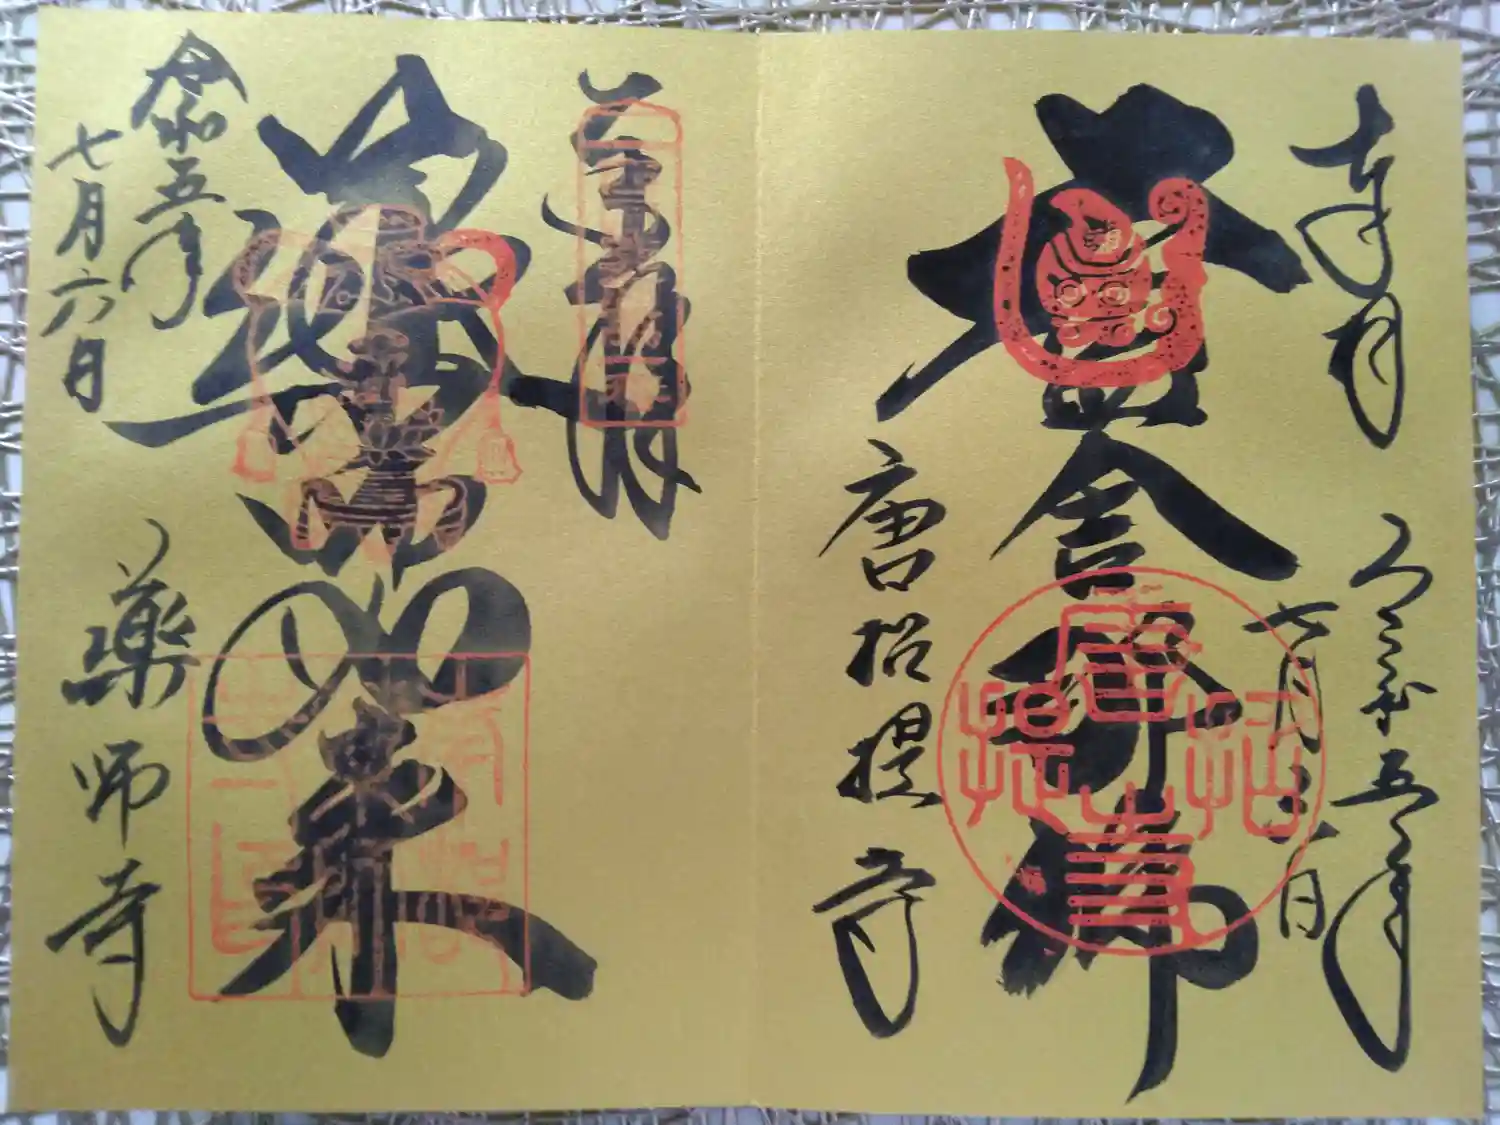 奉拝 令和五年
七月六日
盧舎那仏
唐招提寺
唐招提寺
奉拝
薬師如来
令和五年
七月六日
薬師寺